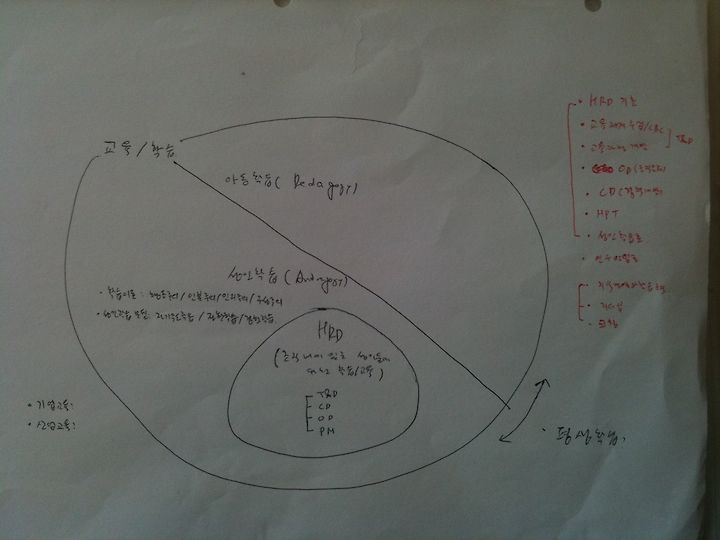 교육/학습
아동학습( Pedagogy)
성인학습 (Andragogy)
• 학습이론 : 행동주의/인본주의/인지주의/구성주의
• 성인학습 모델: 자기주도학습 / 전환학습/경험학습.
HRD
(조직내에 있는 성인들에
대한 학습/교육 )
T&D
CD
OD
PM
• 기업교육?
• 산업교육?
• 평생학습.
• HRD 기초
• 교육
• 교육과정 개발
T&D
• OD (조직개발)
CD (경력개발)
• HPT
• 성인학습론
• 연구방법론
• 리더십
• 코칭